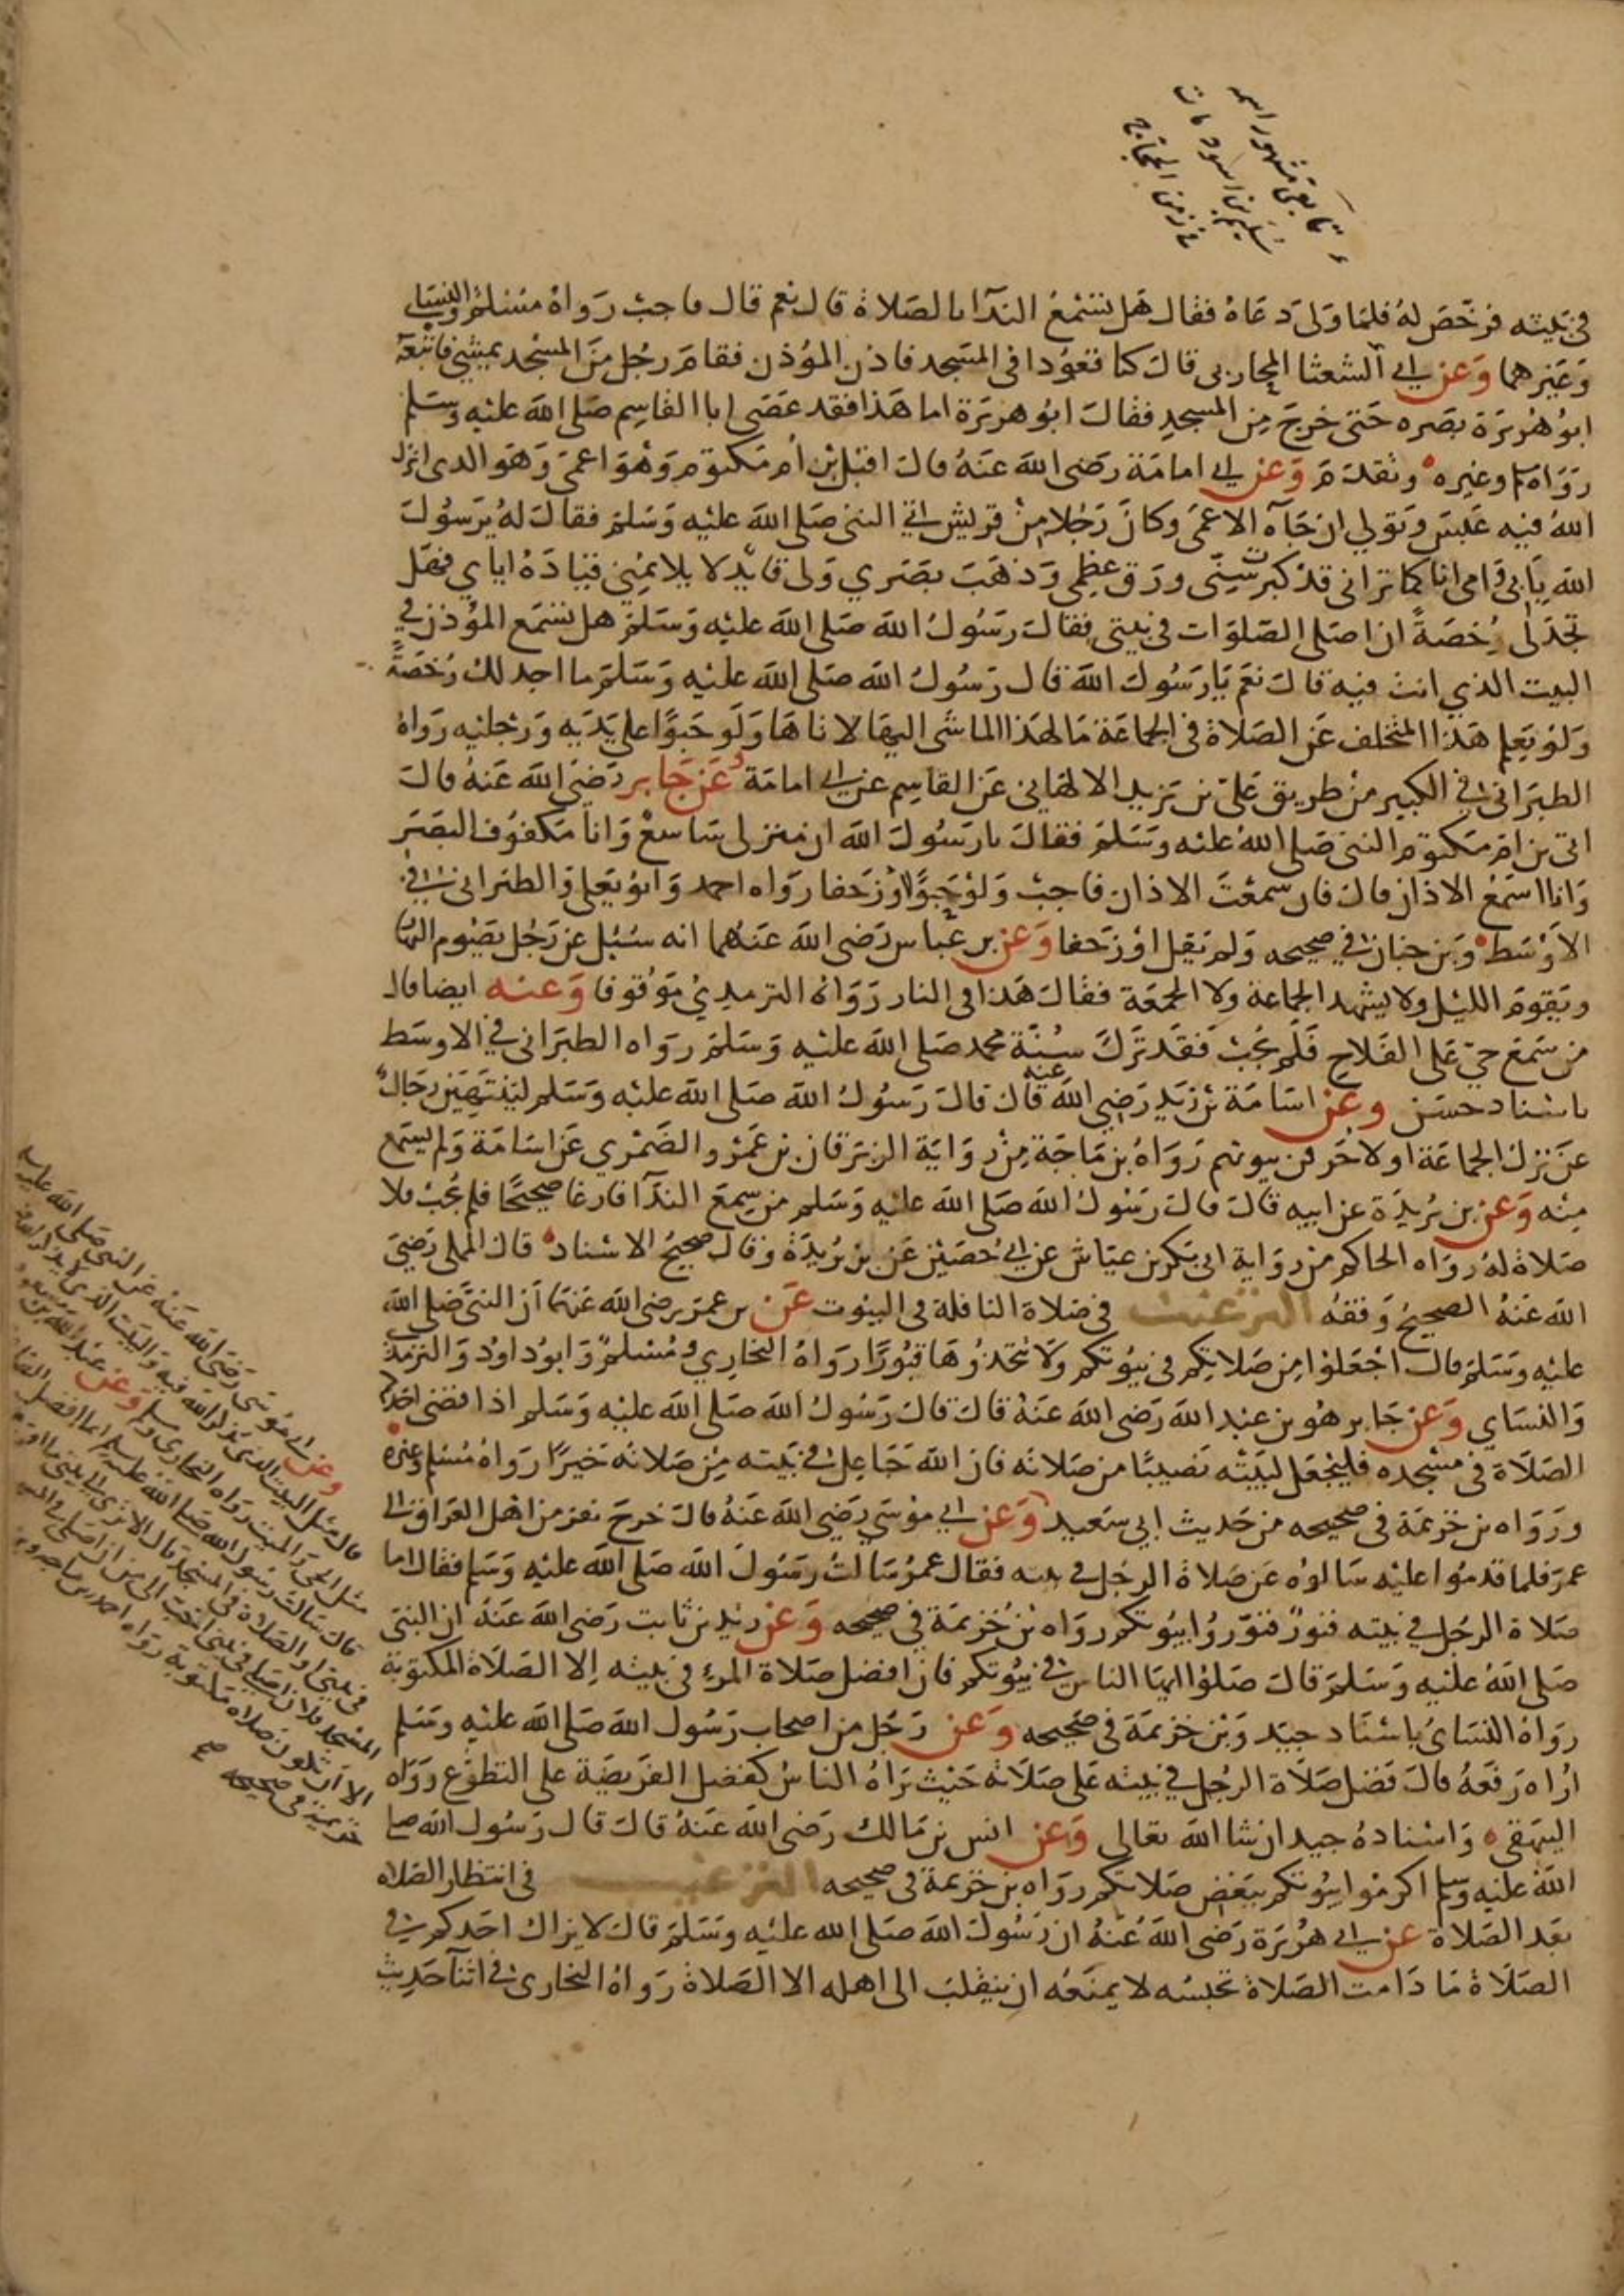 تابعي مشهور اسمه
سليم بن اسود مات
في زمن الحجاج
في بيته فرخص له فلما ولى دعاه فقال هل تسمع الندآ بالصلاة قال نعم قال فاجب رواه مسلم والنسايي
وغيرهما وعن ابي الشعثا المحاربي قال كنا قعودا في المسجد فاذن المؤذن فقام رجل من المسجد يمشي فاتبعه
ابو هريرة بصره حتى خرج من المسجد فقال ابو هريرة اما هذا فقد عصى ابا القاسم صلى الله عليه وسلم
رواه م وغيره وتقدم وعن ابي امامة رضي الله عنه قال اقبل بن أم مكتوم وهو اعمى وهو الذي انزل
الله فيه عبس وتولي ان جآه الاعمى وكان رجلا من قريش الى النبي صلى الله عليه وسلم فقال له يرسول
الله بابي وامي انا كما تراني قد كبرت سني ورق عظمي وذهب بصري ولي قايد لا يلايمني قياده اياي فهل
تجد لي رخصة ان اصلي الصلوات في بيتي فقال رسول الله صلى الله عليه وسلم هل تسمع المؤذن في
البيت الذي انت فيه قال نعم يا رسول الله قال رسول الله صلى الله عليه وسلم ما اجد لك رخصة
ولو يعلم هذا المتخلف عن الصلاة في الجماعة ما لهذا الماشي اليها لاتاها ولو حبوا على يديه ورجليه رواه
الطبراني في الكبير من طريق علي بن يزيد الالهاني عن القاسم عن ابي امامة وعن جابر رضي الله عنه قال
اتى بن ام مكتوم النبي صلى الله عليه وسلم فقال يا رسول الله ان منزلي شاسع وانا مكفوف البصر
وانا اسمع الاذان قال فان سمعت الاذان فاجب ولو حبوا او زحفا رواه احمد وابو يعلى والطبراني في
الاوسط وبن حبان في صحيحه ولم يقل او زحفا وعن بن عباس رضي الله عنهما انه سئل عن رجل يصوم النهار
ويقوم الليل ولا يشهد الجماعة ولا الجمعة فقال هذا في النار رواه الترمذي موقوفا وعنه ايضا قال
من سمع حي على الفلاح فلم يجب فقد ترك سنة محمد صلى الله عليه وسلم رواه الطبراني في الاوسط
باسناد حسن وعن اسامة بن زيد رضي الله عنه قال قال رسول الله صلى الله عليه وسلم لينتهين رجال
عن ترك الجماعة او لاحرقن بيوتهم رواه بن ماجة من رواية الزبرقان بن عمرو الضمري عن اسامة ولم يسمع
منه وعن بن بريدة عن ابيه قال قال رسول الله صلى الله عليه وسلم من سمع الندآ فارغا صحيحا فلم يجب فلا
صلاة له رواه الحاكم من رواية ابي بكر بن عياش عن ابي حصين عن بن بريدة وقال صحيح الاسناد قال المملي رضي
الله عنه الصحيح وقفه الترغيب في صلاة النافلة في البيوت عن بن عمر رضي الله عنهما ان النبي صلى الله
عليه وسلم قال اجعلوا من صلاتكم في بيوتكم ولا تتخذوها قبورا رواه البخاري ومسلم وابو داود والترمذي
والنساي وعن جابر هو بن عبد الله رضي الله عنه قال قال رسول الله صلى الله عليه وسلم اذا قضى احدكم
الصلاة في مسجده فليجعل لبيته نصيبا من صلاته فان الله جاعل في بيته من صلاته خيرا رواه مسلم وغيره
ورواه بن خزيمة في صحيحه من حديث ابي سعيد وعن ابي موسى رضي الله عنه قال خرج نفر من اهل العراق الى
عمر فلما قدموا عليه سالوه عن صلاة الرجل في بيته فقال عمر سالت رسول الله صلى الله عليه وسلم فقال اما
صلاة الرجل في بيته فنور فنوروا بيوتكم رواه بن خزيمة في صحيحه وعن زيد بن ثابت رضي الله عنه ان النبي
صلى الله عليه وسلم قال صلوا ايها الناس في بيوتكم فان افضل صلاة المرء في بيته الا الصلاة المكتوبة
رواه النساي باسناد جيد وبن خزيمة في صحيحه وعن رجل من اصحاب رسول الله صلى الله عليه وسلم
اراه رفعه قال فضل صلاة الرجل في بيته على صلاته حيث يراه الناس كفضل الفريضة على التطوع رواه
البيهقي واسناده جيد ان شا الله تعالى وعن انس بن مالك رضي الله عنه قال قال رسول الله صلى
الله عليه وسلم اكرموا بيوتكم ببعض صلاتكم رواه بن خزيمة في صحيحه الترغيب في انتظار الصلاه
بعد الصلاة عن ابي هريرة رضي الله عنه ان رسول الله صلى الله عليه وسلم قال لا يزال احدكم في
الصلاة ما دامت الصلاة تحبسه لا يمنعه ان ينقلب الى اهله الا الصلاة رواه البخاري في اثنآ حديث
وعن ابي موسى رضي الله عنه عن النبي صلى الله عليه وسلم
قال مثل البيت الذي يذكر الله فيه والبيت الذي لا يذكر الله فيه
مثل الحي والميت رواه البخاري وسلم وعن عبد الله بن سعد
قال سالت رسول الله صلى الله عليه وسلم ايما افضل الصلاة
في بيتي او الصلاة في المسجد قال الا ترى الى بيتي ما اقربه
المسجد فلان اصلي في بيتي احب الي من ان اصلي في المسجد
الا ان تكون صلاة مكتوبة رواه احمد وبن ماجه وبن
خزيمة في صحيحه صح